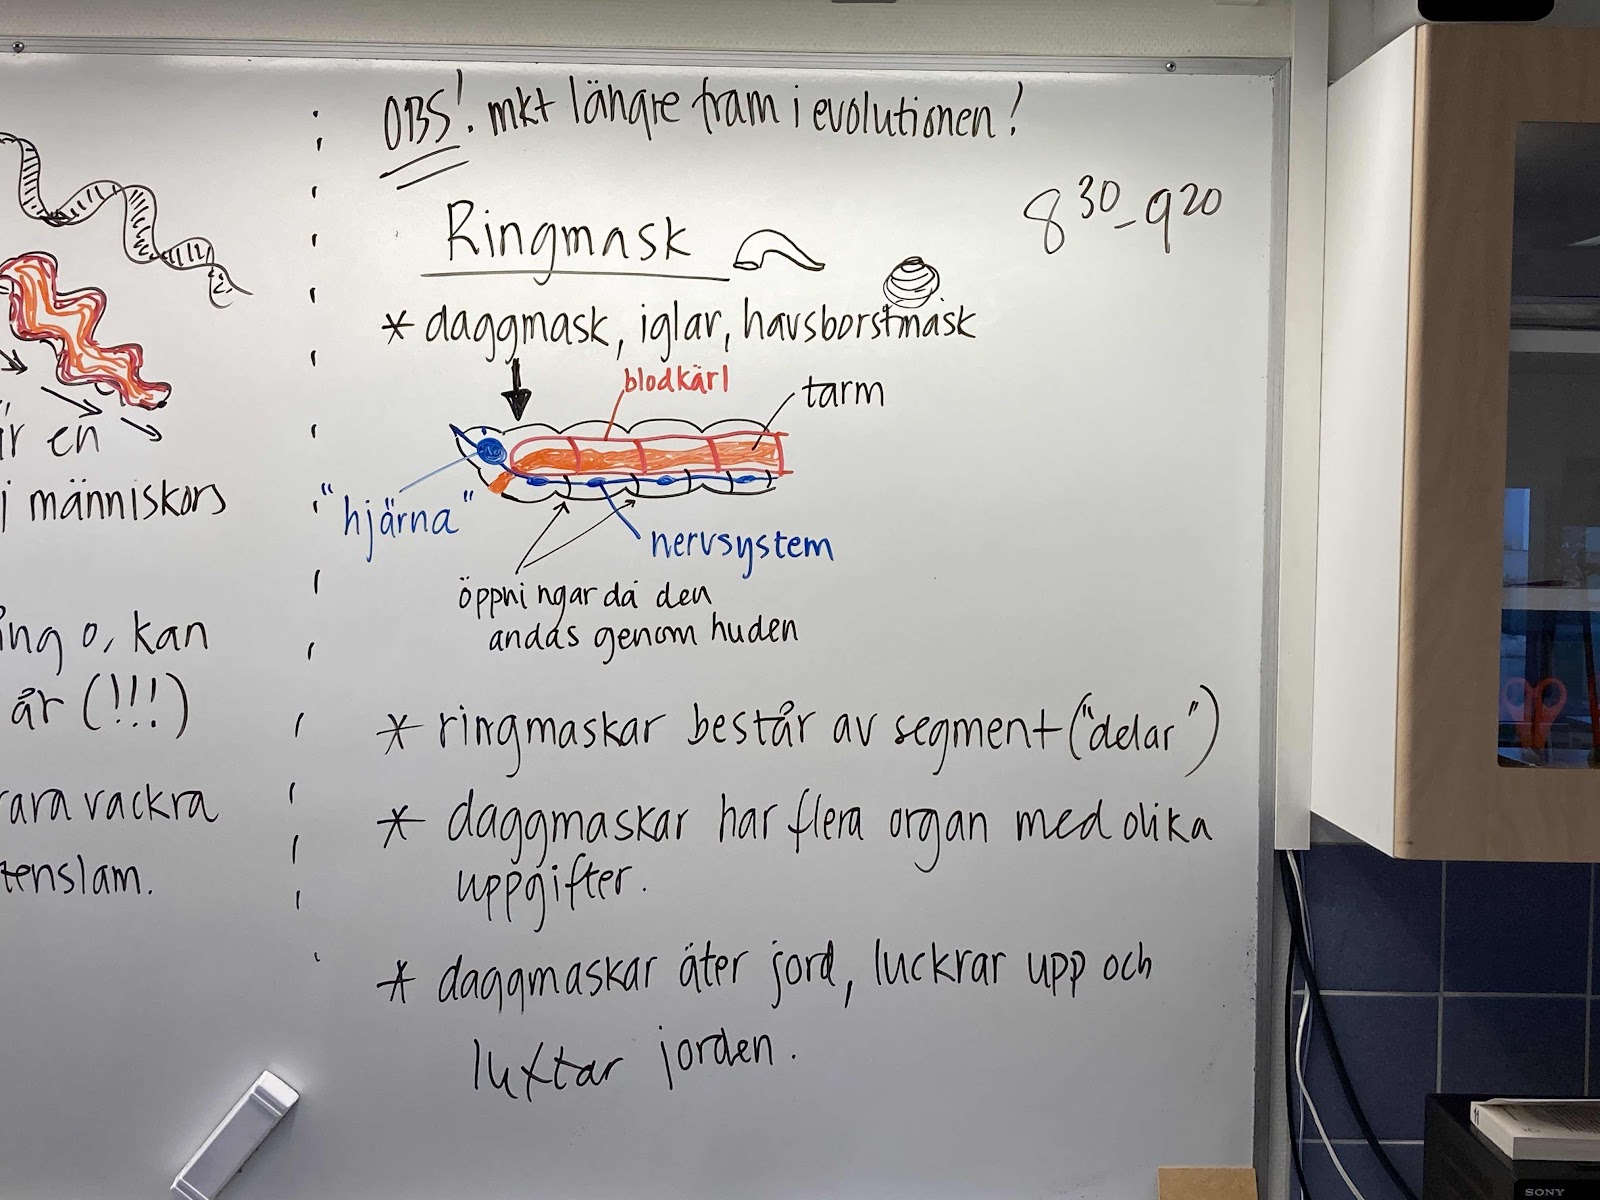 är en
i människors
ång o, kan
år (!!!)
vackra
tenslam.
OBS! mkt längre fram i evolutionen!
8 30 - 9 20
Ringmask
* daggmask, iglar, havsborstmask
blodkärl
tarm
"hjärna"
nervsystem
öppningar då den
andas genom huden
* ringmaskar består av segment ("delar")
* daggmaskar har flera organ med olika
uppgifter.
* daggmaskar äter jord, luckrar upp och
luftar jorden.
SONY